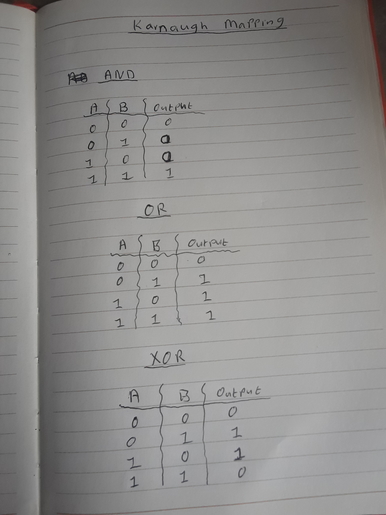 Karnaugh Mapping
AND
A B Output
0 0 0
0 1 0
1 0 0
1 1 1
OR
A B Output
0 0 0
0 1 1
1 0 1
1 1 1
XOR
A B Output
0 0 0
0 1 1
1 0 1
1 1 0